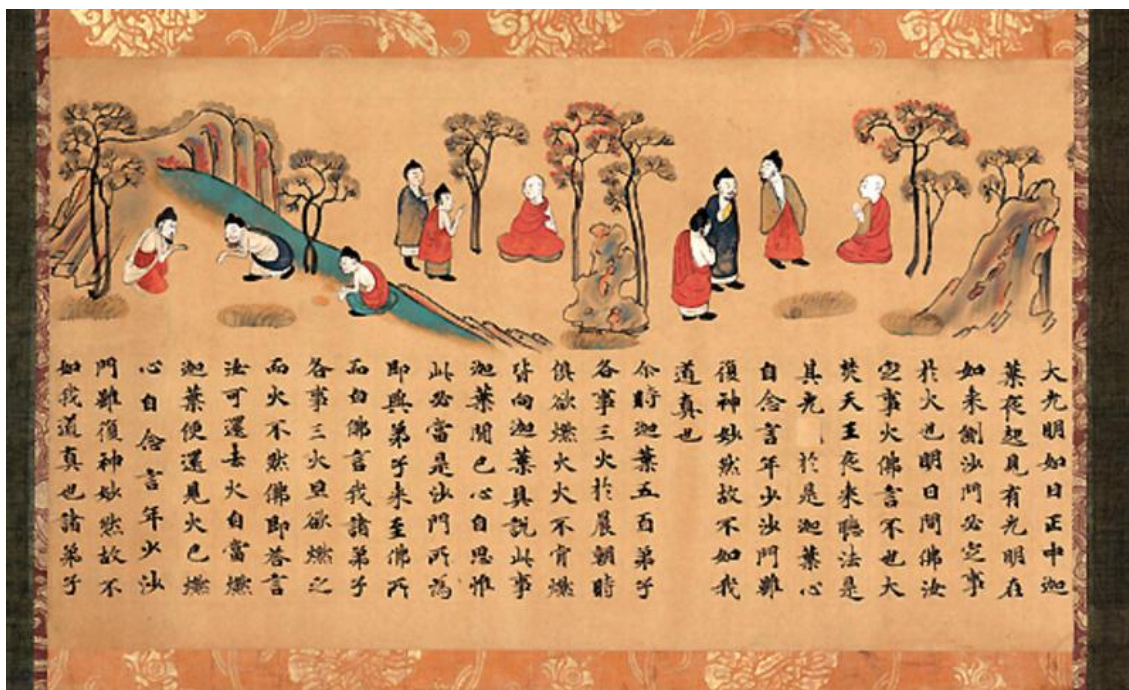 大光明如日正中迦
葉夜起見有光明在
如来側沙門必定事
於火也明日問佛汝
定事火佛言不也大
梵天王夜来聴法是
其光於是迦葉心
自念言年少沙門雖
復神妙然故不如我
道真也
尒時迦葉五百弟子
各事三火於晨朝時
倶欲燃火火不肯燃
皆向迦葉具説此事
迦葉聞已心自思惟
此必當是沙門所為
即與弟子来至佛所
而白佛言我諸弟子
各事三火旦欲燃之
而火不然佛即答言
汝可還去火自當燃
迦葉便還見火已燃
心自念言年少沙
門雖復神妙然故不
如我道真也諸弟子